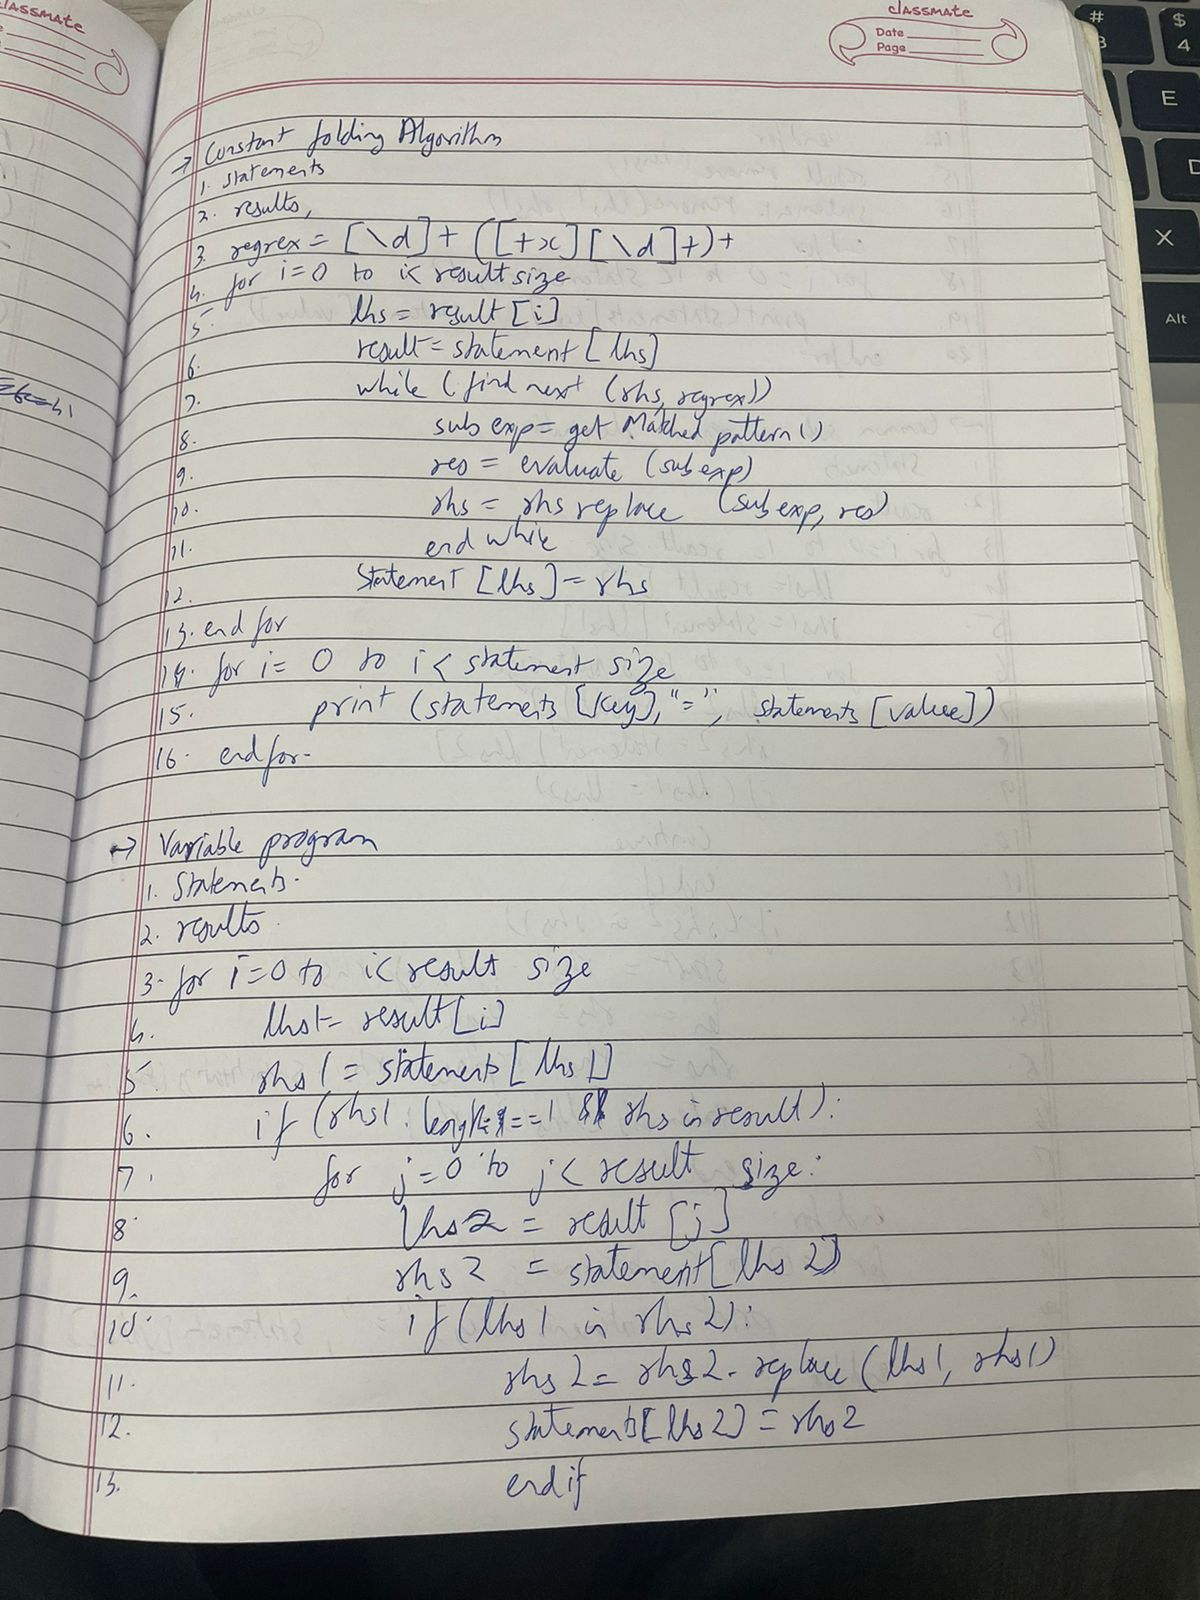 classmate
Date
Page
→ Constant folding Algorithm
1. statements
2. results,
3. regrex = [\d]+ ([+x][\d]+)+
4. for i=0 to i< result size
5. lhs = result [i]
6. result = statement [lhs]
7. while (find next (rhs, regrex))
8. sub exp = get Matched pattern()
9. res = evaluate (sub exp)
10. rhs = rhs replace (sub exp, res)
11. end while
12. Statement [lhs] = rhs
13. end for
14. for i= 0 to i < statement size
15. print (statements [key], "=", statements [value])
16. end for-
→ Variable program
1. Statements.
2. results.
3. for i=0 to i< result size
4. lhs1= result [i]
5. rhs 1 = statements [lhs 1]
6. if (rhs1. length==1 && rhs in result):
7. for j=0 to j< result size:
8. lhs2 = result [j]
9. rhs 2 = statement [lhs 2]
10. if (lhs 1 in rhs 2):
11. rhs 2 = rhs 2. replace (lhs1, rhs1)
12. statements [lhs 2] = rhs 2
13. end if
# 3
$ 4
E
D
X
Alt